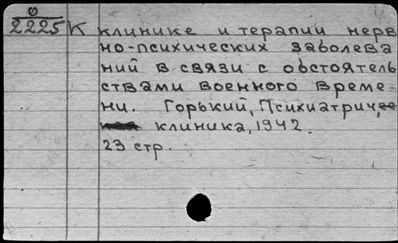 2225 К клинике и терапии нерв
но-психических заболева
ний в связи с обстоятель
ствами военного време-
ни. Горький, Психиатрич,
клиника, 1942.
23 стр.